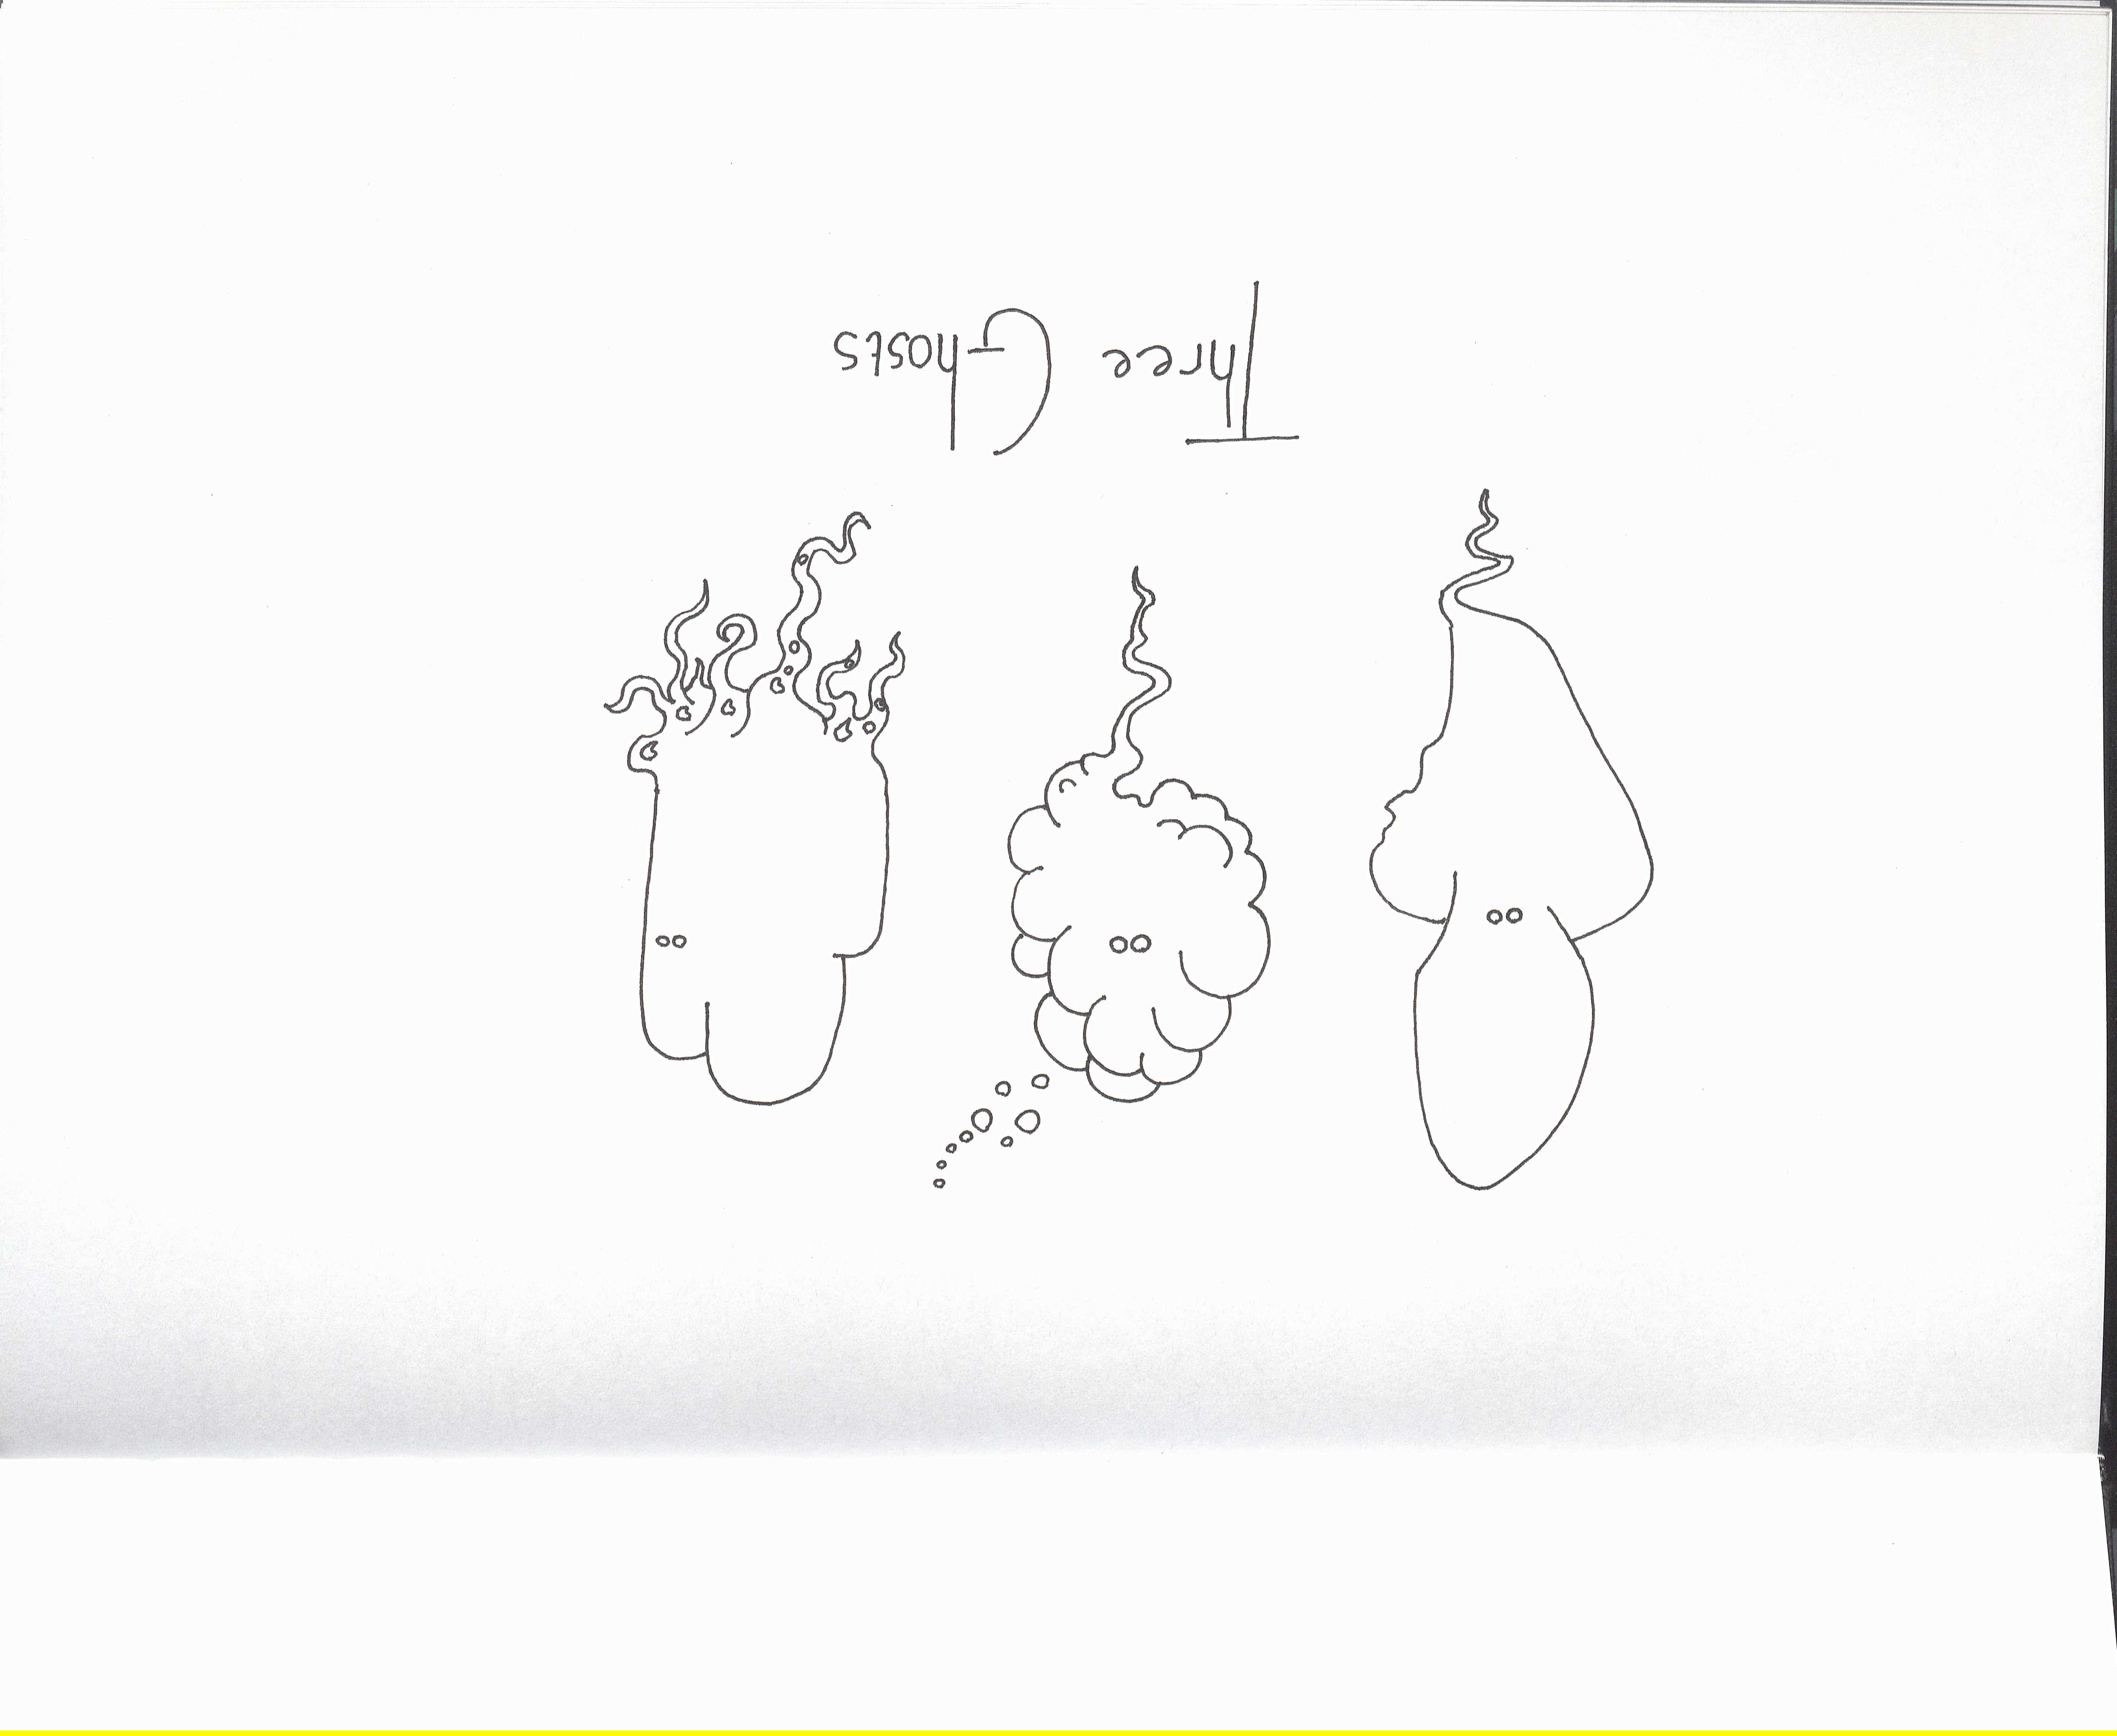 Three Ghosts